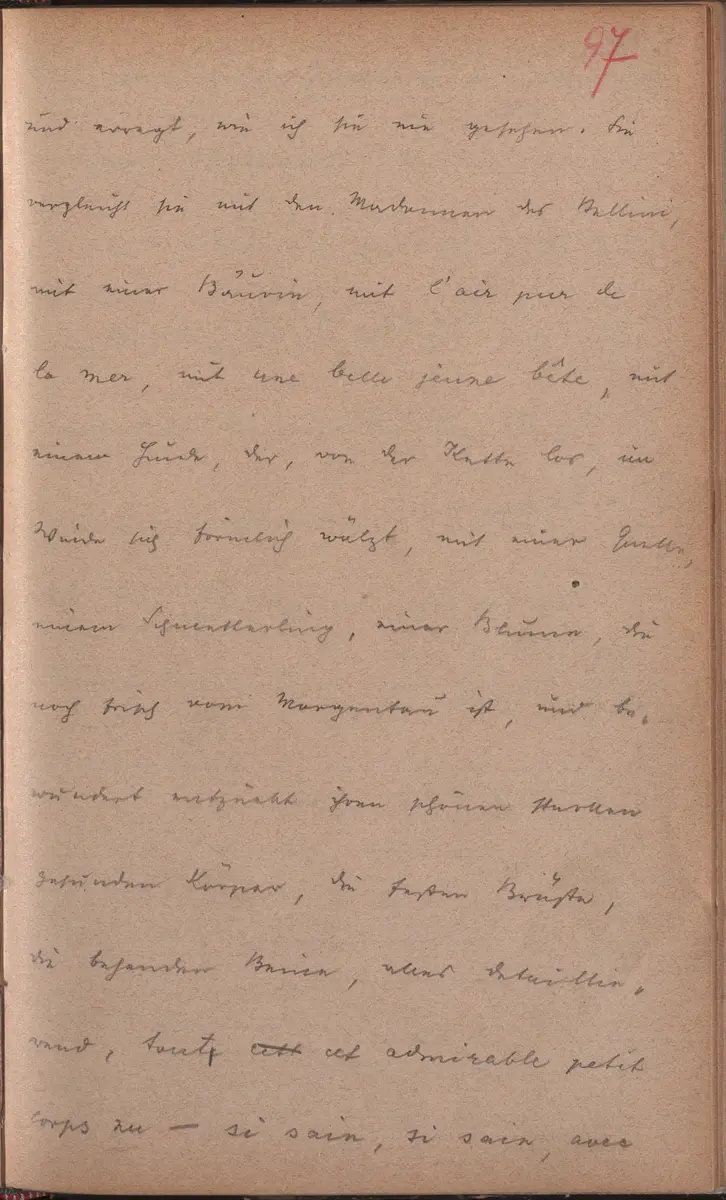 97
und erregt, wie ich sie nie gesehen. Sie
vergleicht sie mit den Madonnen des Bellini,
mit einer Bäurin, mit l'air pur de
la mer, mit une belle jeune bête, mit
einem Hunde, der, von der Kette los, im
Winde sich förmlich wälzt, mit einer Quelle,
einem Schmetterling, einer Blume, die
noch frisch vom Morgentau ist, und be„
wundert entzückt ihren schönen starken
gesunden Körper, die festen Brüste,
die behenden Beine, alles detaillie„
rend, tout cet admirable petit
corps nu — si sain, si sain, avec